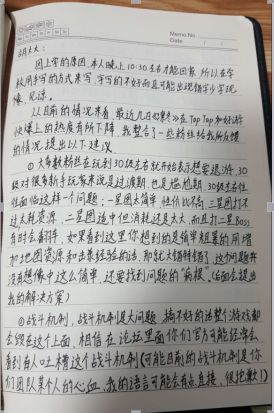 Memo No.
Date
月太太：
因上学的原因，本人晚上10:30左右才能回家，所以在学
校用手写的方式来写，字写的不好而且可能出现错字少字现
像，见谅。
以目前的情况来看，最近几日，在TapTap和好游
快爆上的热度有所下降，我整合了一些粉丝给我所反馈
的情况提出以下建议
①大多数粉丝在玩到30级左右就开始表示想要退游，30
级对很多新手玩家来说是过渡期，也是尴尬期，30级左右
性面临这样一个问题：一星图太简单，性价比不高，三星图打不
过太耗资源，二星图适中但消耗还是太大，而且打二星Boss
有时会翻车，如果看到这里你想到的是简单粗暴的用增
加地图资源和结算经验的话，那就大错特错了，这个问题并
没有想像中这么简单，还要找到问题的“病根”。（后面会提出
我的解决方案）
②战斗机制，战斗机制是大问题，搞不好的话整个游戏都
会毁在这个上面，相信在论坛里面你们官方可能经常会
看到有人吐槽这个战斗机制（可能目前的战斗机制是你
们团队某个人的心血，我的语言可能会有点直接，很抱歉！）